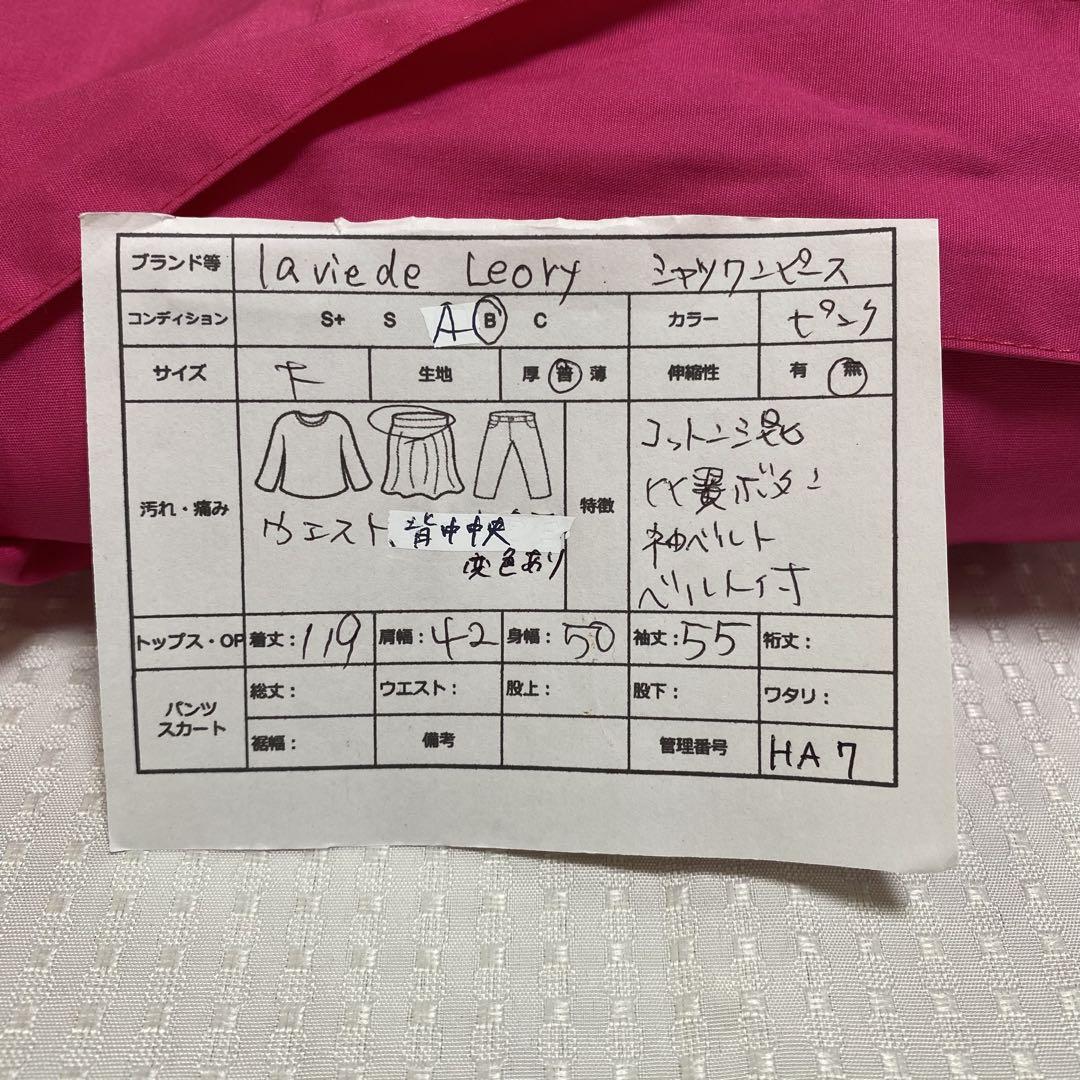 ブランド等 la vie de Leory シャツワンピース
コンディション S+ S A B C カラー ピンク
サイズ F 生地 厚 普 薄 伸縮性 有 無
汚れ・痛み ウエスト、背中中央
変色あり
特徴 コットン混
比翼ボタン
袖ベルト
ベルト付
トップス・OP 着丈:119 肩幅:42 身幅:50 袖丈:55 裄丈:
パンツ
スカート 総丈: ウエスト: 股上: 股下: ワタリ:
裾幅: 備考 管理番号 HA7